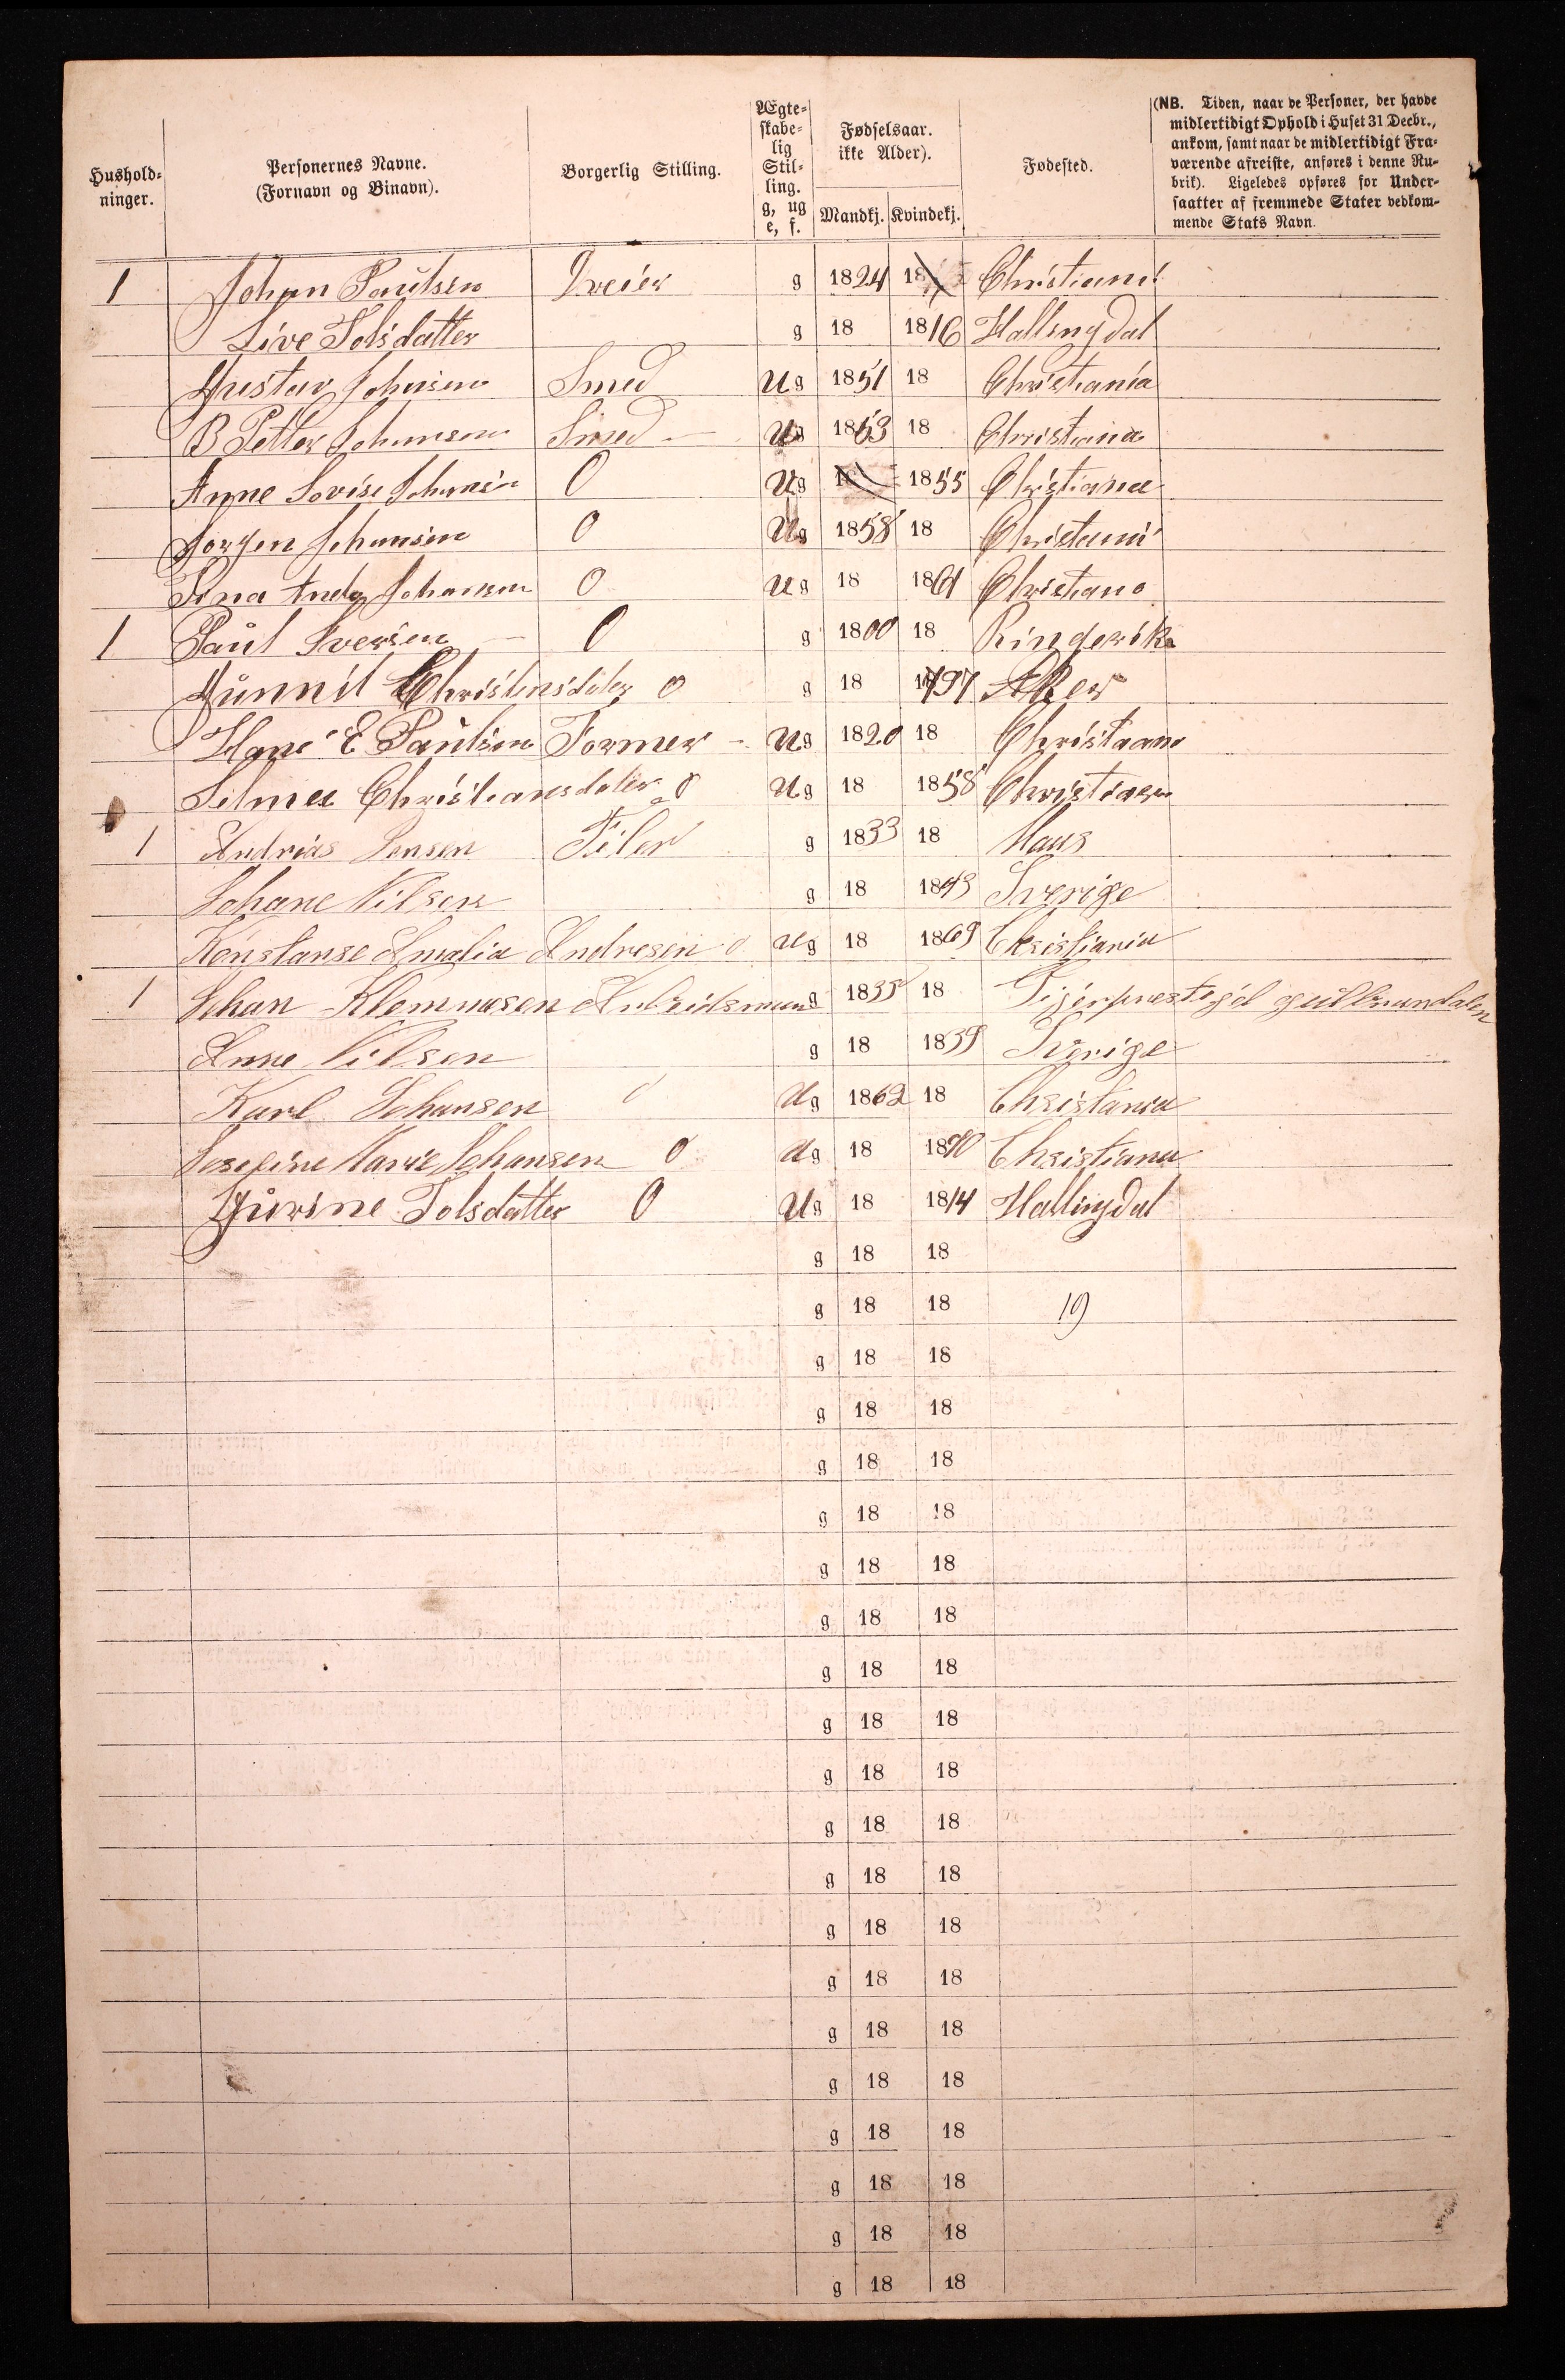 Hushold-
ninger.
Personernes Navne.
(Fornavn og Binavn).
Borgerlig Stilling.
Ægte-
skabe-
lig
Stil-
ling.
g, ug
e, f.
Fødselsaar.
ikke Alder).
Mandkj. Kvindekj.
Fødested.
(NB. Tiden, naar de Personer, der havde
midlertidigt Ophold i Huset 31 Decbr.,
ankom, samt naar de midlertidigt Fra-
værende afreiste, anføres i denne Ru-
brik). Ligeledes opføres for Under-
saatter af fremmede Stater vedkom-
mende Stats Navn.
1 Johan Paulsen Dreier g 1824 18 Christiani
Live Tolsdatter g 18 1816 Hallingdal
Gustav Johnsen Smed Ug 1851 18 Christiania
B Petter Johansen Smed Ug 1853 18 Christiania
Anne Lovise Johansen 0 Ug 18 1855 Christiana
Jorgen Johansen 0 Ug 1858 18 Christiani
Johansen 0 Ug 18 1861 Christiana
1 Paul Iversen 0 g 1800 18 Ringerike
Gunnil Christensdater 0 g 18 1797 Aker
Hans E Paulsen Former Ug 1820 18 Christiana
Silmea Christiansdater 0 Ug 18 1858 Christiana
1 Andrias Jensen Filer g 1833 18
Johane Nilsen g 18 1843 Sverige
Konstanse Amalia Andresen 0 Ug 18 1869 Christiania
1 Johan Klemmasen Arbeidsmand g 1835 18
Anne Nilsen g 18 1839 Sverige
Karl Johansen 0 Ug 1862 18 Christiania
Josefine Marie Johansen 0 Ug 18 1870 Christiana
Gurine Tolsdatter 0 Ug 18 1814 Hallingdal
g 18 18
g 18 18 19
g 18 18
g 18 18
g 18 18
g 18 18
g 18 18
g 18 18
g 18 18
g 18 18
g 18 18
g 18 18
g 18 18
g 18 18
g 18 18
g 18 18
g 18 18
g 18 18
g 18 18
g 18 18
g 18 18